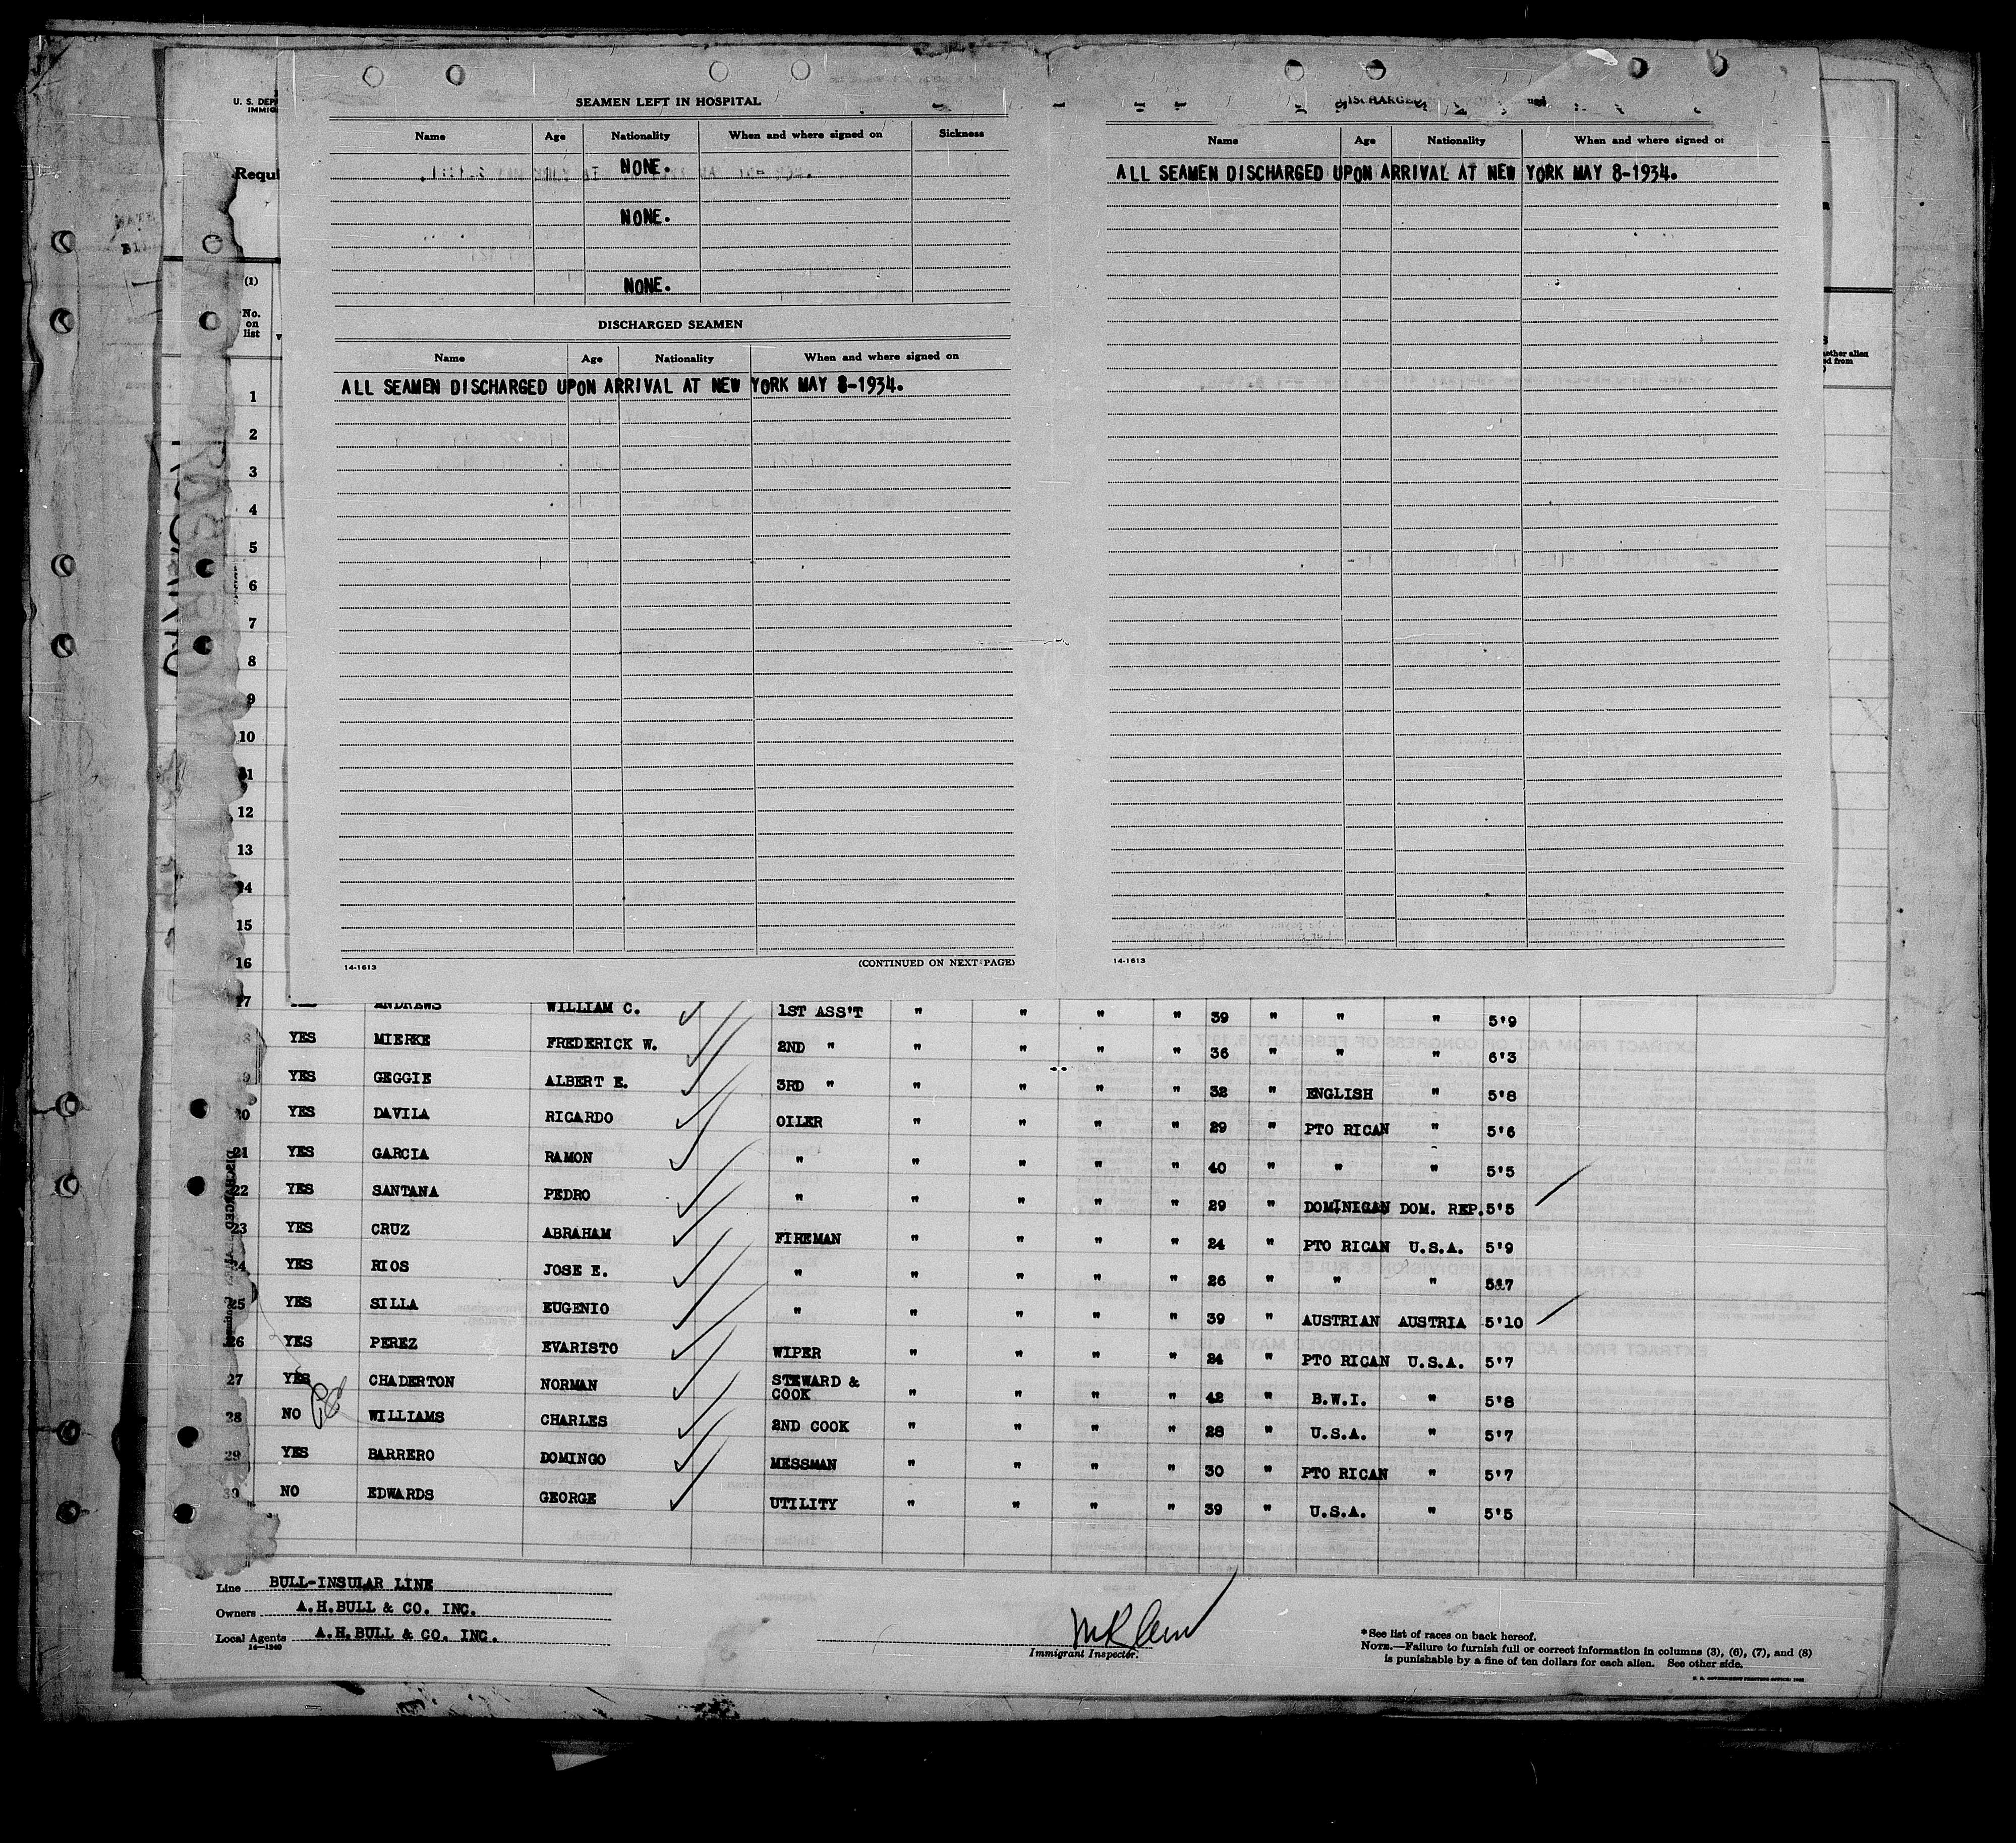 U. S. DEP
IMMIG
Requi
(1)
No.
on
list
SEAMEN LEFT IN HOSPITAL
Name Age Nationality When and where signed on Sickness
NONE.
NONE.
NONE.
DISCHARGED SEAMEN
Name Age Nationality When and where signed on
ALL SEAMEN DISCHARGED UPON ARRIVAL AT NEW YORK MAY 8-1934.
14-1613
(CONTINUED ON NEXT PAGE)
DISCHARGED
Name Age Nationality When and where signed o
ALL SEAMEN DISCHARGED UPON ARRIVAL AT NEW YORK MAY 8-1934.
14-1613
1
2
3
4
5
6
7
8
9
10
11
12
13
14
15
16
17 ANDREWS WILLIAM C. 1ST ASS'T " " " " 39 " " " 5'9
8 YES MIERKE FREDERICK W. 2ND " " " " " 36 " " " 6'3
9 YES GEGGIE ALBERT E. 3RD " " " " " 32 " ENGLISH " 5'8
20 YES DAVILA RICARDO OILER " " " " 29 " PTO RICAN " 5'6
21 YES GARCIA RAMON " " " " " 40 " " " 5'5
22 YES SANTANA PEDRO " " " " " 29 " DOMINICAN DOM. REP. 5'5
23 YES CRUZ ABRAHAM FIREMAN " " " " 24 " PTO RICAN U.S.A. 5'9
24 YES RIOS JOSE E. " " " " " 26 " " " 5'7
25 YES SILLA EUGENIO " " " " " 39 " AUSTRIAN AUSTRIA 5'10
26 YES PEREZ EVARISTO WIPER " " " " 24 " PTO RICAN U.S.A. 5'7
27 YES CHADERTON NORMAN STEWARD & COOK " " " " 42 " B.W.I. " 5'8
28 NO WILLIAMS CHARLES 2ND COOK " " " " 28 " U.S.A. " 5'7
29 YES BARRERO DOMINGO MESSMAN " " " " 30 " PTO RICAN " 5'7
30 NO EDWARDS GEORGE UTILITY " " " " 39 " U.S.A. " 5'5
Line BULL-INSULAR LINE
Owners A.H.BULL & CO. INC.
Local Agents A.H.BULL & CO. INC.
14-1240
Immigrant Inspector.
*See list of races on back hereof.
NOTE.—Failure to furnish full or correct information in columns (3), (6), (7), and (8)
is punishable by a fine of ten dollars for each alien. See other side.